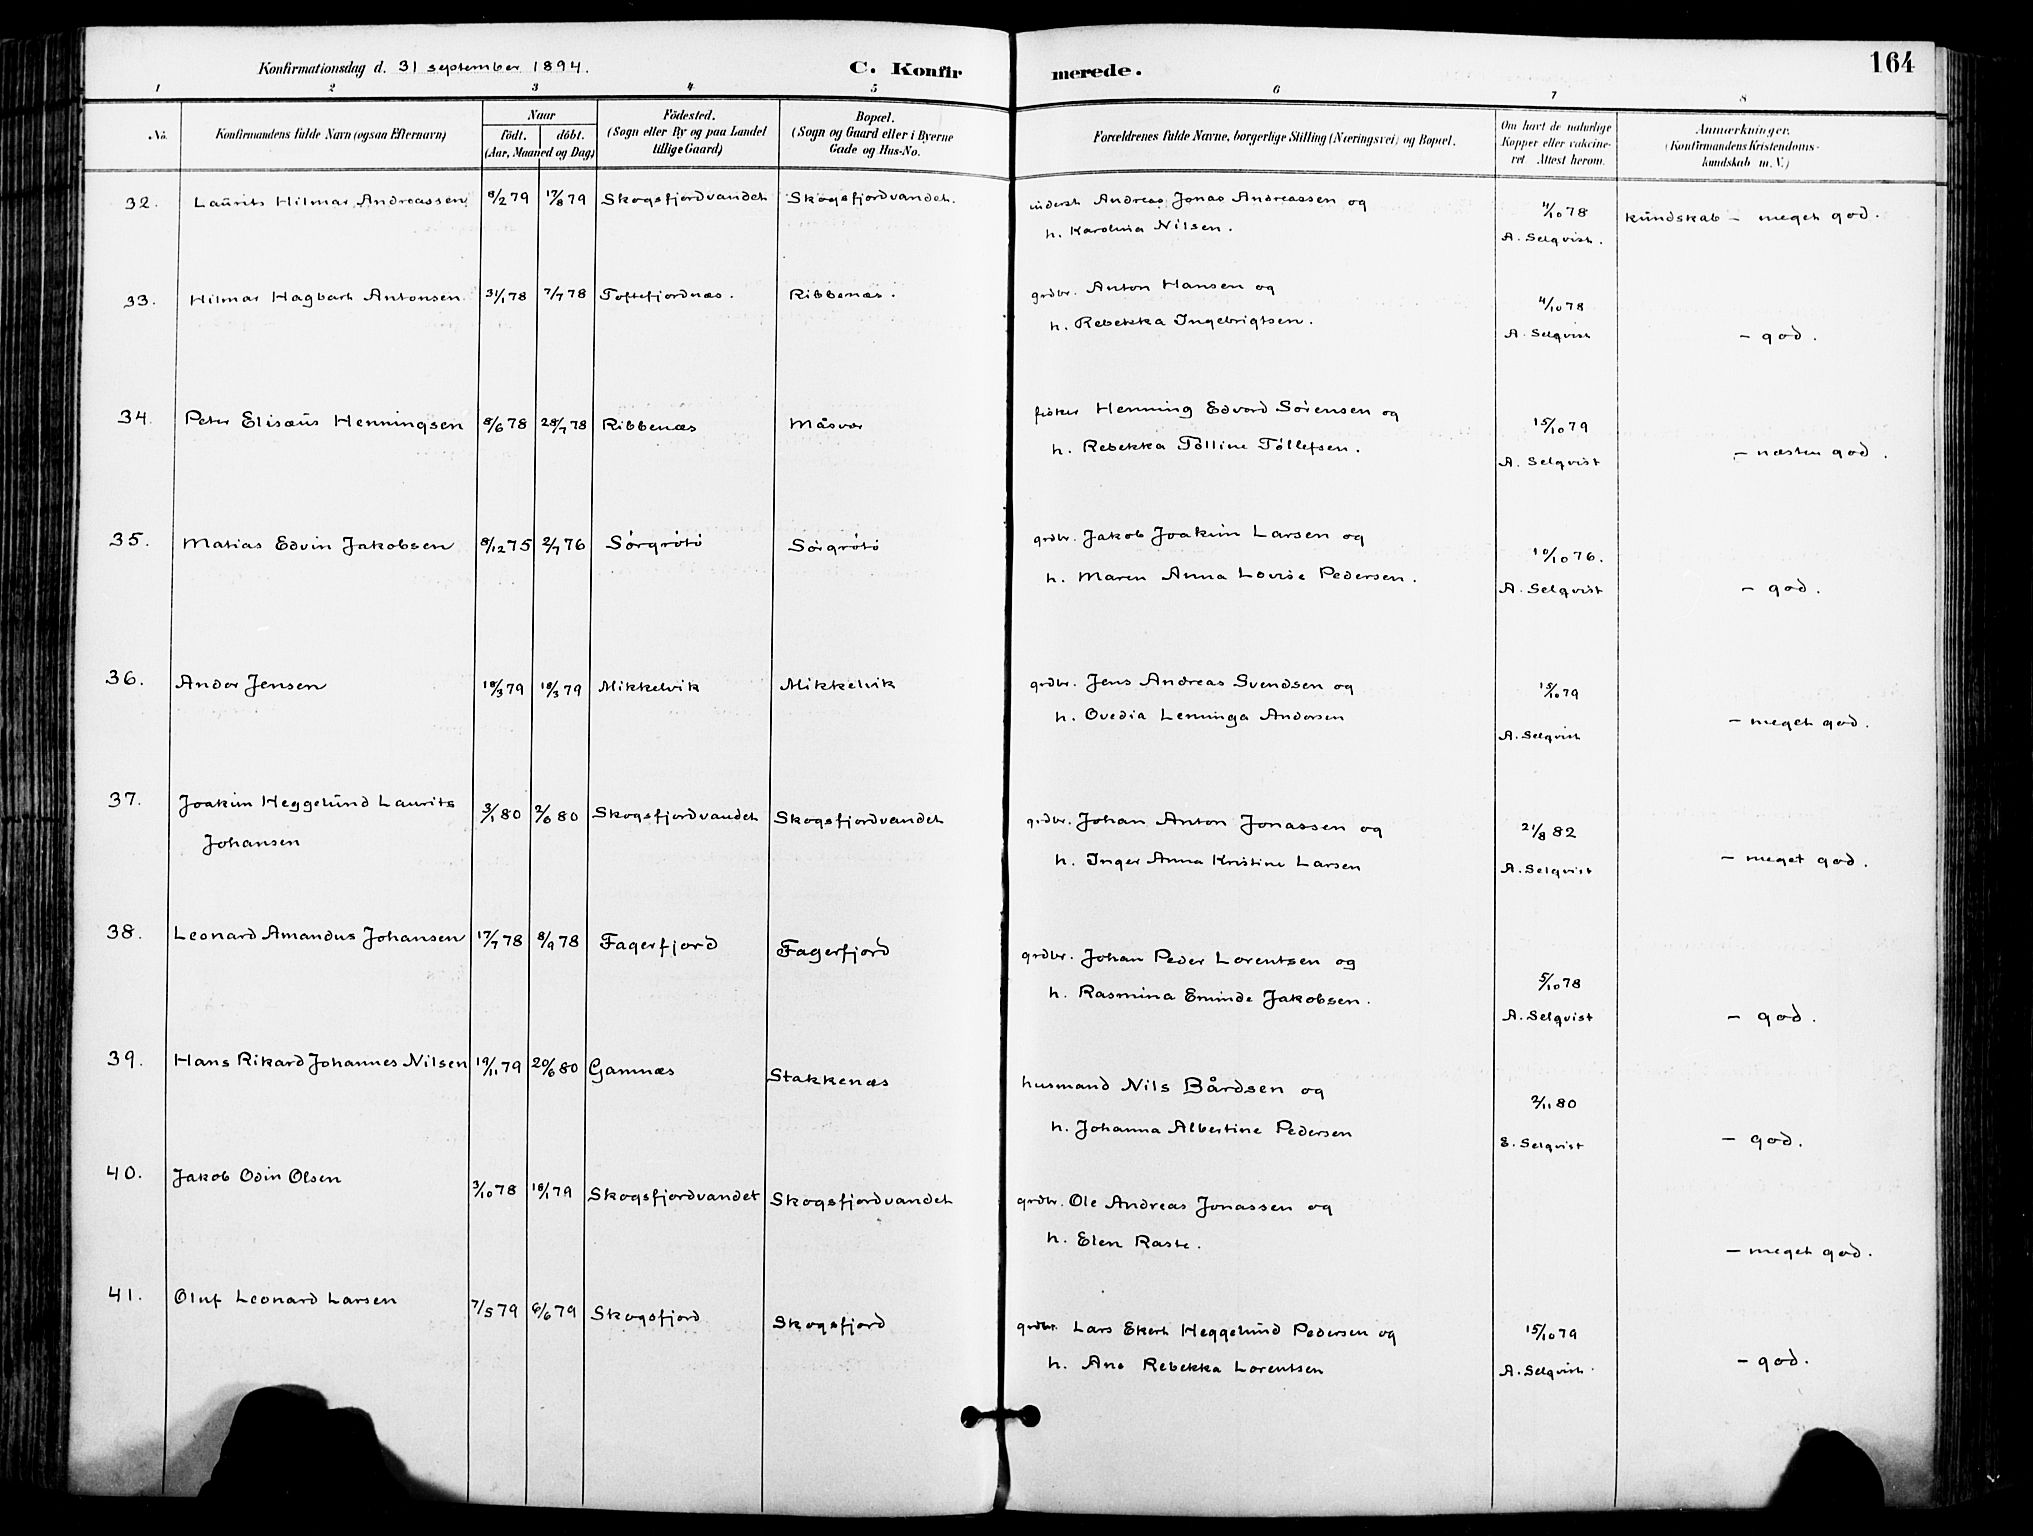 Konfirmationsdag d. 31 september 1894. C. Konfirmerede. 164
1 2 3 4 5 6 7 8
No. Konfirmandens fulde Navn (ogsaa Efternavn) Naar födt. döbt. (Aar, Maaned og Dag) Födested. (Sogn eller By og paa Landet tillige Gaard) Bopæl. (Sogn og Gaard eller i Byerne Gade og Hus-No. Forældrenes fulde Navne, borgerlige Stilling (Næringsvei) og Bopæl. Om havt de naturlige Kopper eller vakcineret Attest herom. Anmærkninger. (Konfirmandens Kristendomskundskab m. V.)
32. Laurits Hilmar Andreassen 8/2 79 17/8 79 Skogsfjordvandet Skogsfjordvandet. inderst Andreas Jonas Andreassen og 11/10 78 kundskab – meget god.
h. Karolina Nilsen. A. Selqvist.
33. Hilmar Hagbart Antonsen 31/1 78 7/7 78 Toftefjordnæs. Ribbenæs. grdbr. Anton Hansen og 4/10 78
h. Rebekka Ingebrigtsen. A. Selqvist – god.
34. Peter Elisæus Henningsen 8/6 78 28/7 78 Ribbenæs Måsvær fisker Henning Edvard Sørensen og 15/10 79
h. Rebekka Tolline Tøllefsen. A. Selqvist – næsten god.
35. Matias Edvin Jakobsen 8/12 75 2/7 76 Sørgrøtø Sørgrøtø grdbr. Jakob Joakim Larsen og 10/10 76.
h. Maren Anna Lovise Pedersen. A. Selqvist – god.
36. Andor Jensen 18/3 79 18/3 79 Mikkelvik Mikkelvik grdbr. Jens Andreas Svendsen og 15/10 79
h. Ovedia Lenninga Andersen A. Selqvist – meget god.
37. Joakim Heggelund Laurits 3/1 80 2/6 80 Skogsfjordvandet Skogsfjordvandet grdbr. Johan Anton Jonassen og 21/8 82
Johansen h. Inger Anna Kristine Larsen A. Selqvist – meget god.
38. Leonard Amandus Johansen 17/7 78 8/9 78 Fagerfjord Fagerfjord grdbr. Johan Peder Lorentsen og 5/10 78
h. Rasmina Eminde Jakobsen. A. Selqvist – god.
39. Hans Rikard Johannes Nilsen 19/11 79 20/6 80 Gamnæs Stakkenæs husmand Nils Bårdsen og 2/11 80
h. Johanna Albertine Pedersen E. Selqvist – god.
40. Jakob Odin Olsen 3/10 78 18/1 79 Skogsfjordvandet Skogsfjordvandet grdbr. Ole Andreas Jonassen og
h. Elen Raste. – meget god.
41. Oluf Leonard Larsen 7/5 79 6/6 79 Skogsfjord Skogsfjord grdbr. Lars Ekert Heggelund Pedersen og 15/10 79
h. Ane Rebekka Lorentsen A. Selqvist – god.